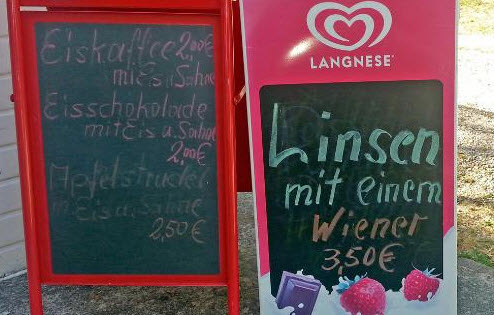 Eiskaffee 2,00€
mit Eis u. Sahne
Eisschokolade
mit Eis u. Sahne
2,00€
Apfelstrudel
m. Eis u. Sahne
2,50€
LANGNESE
Linsen
mit einem
Wiener
3,50€